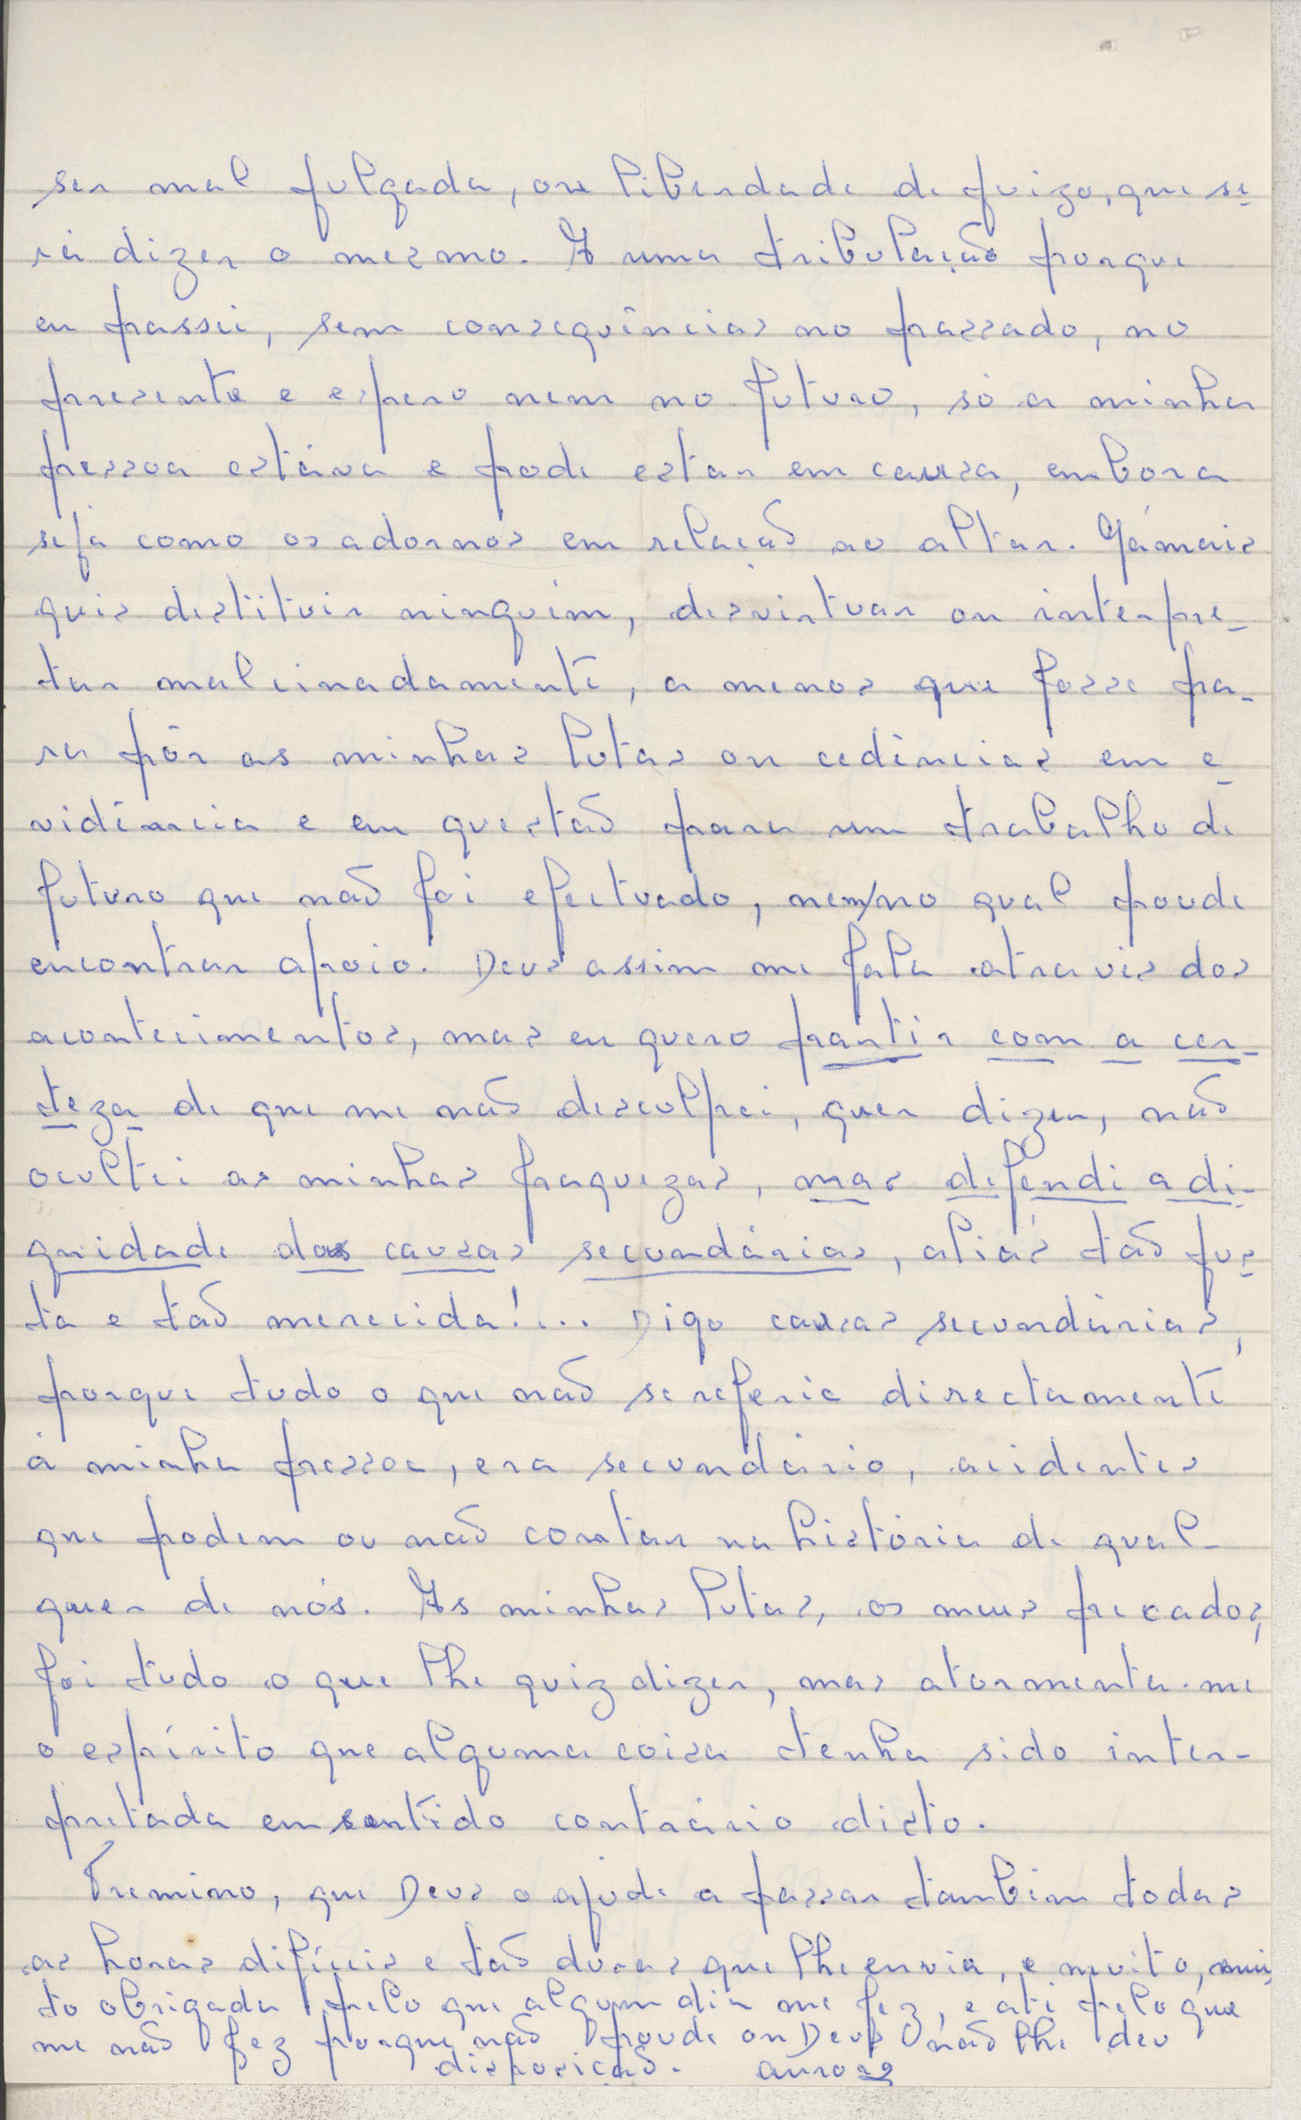 ser mal julgada, ou liberdade de juizo, que se-
rá dizer o mesmo. É uma tribulação porque
eu passei, sem consequências no passado, no
presente e espero nem no futuro, só a minha
pessoa estáva e pode estar em causa, embora
seja como os adornos em relação ao altar. Jámais
quis destituir ninguém, desvirtuar ou interpre-
tar malsinadamente, a menos que fosse pa-
ra pôr as minhas lutas ou cedências em e-
vidência e em questão para um trabalho de
futuro que não foi efectuado, nem/no qual poude
encontrar apoio. Deus assim me fala através dos
acontecimentos, mas eu quero partir com a cer-
teza de que me não desculpei, quer dizer, não
ocultei as minhas fraquezas, mas defendi a di-
gnidade das causas secundárias, aliás tão jus-
ta e tão merecida!... Digo causas secundárias,
porque tudo o que não se referie directamente
à minha pessoa, era secundário, acidentes
que podem ou não contar na história de qual-
quer de nós. As minhas lutas, os meus pecados,
foi tudo o que lhe quiz dizer, mas atormenta-me
o espírito que alguma coisa tenha sido inter-
pretada em sentido contrário disto.
Tremino, que Deus o ajude a passar também todas
as horas difíceis e tão duras que lhe envia, e muito, mui-
to obrigada pelo que algum dia me fez, e até pelo que
me não fez porque não poude ou Deus não lhe deu
disposição. Aurora